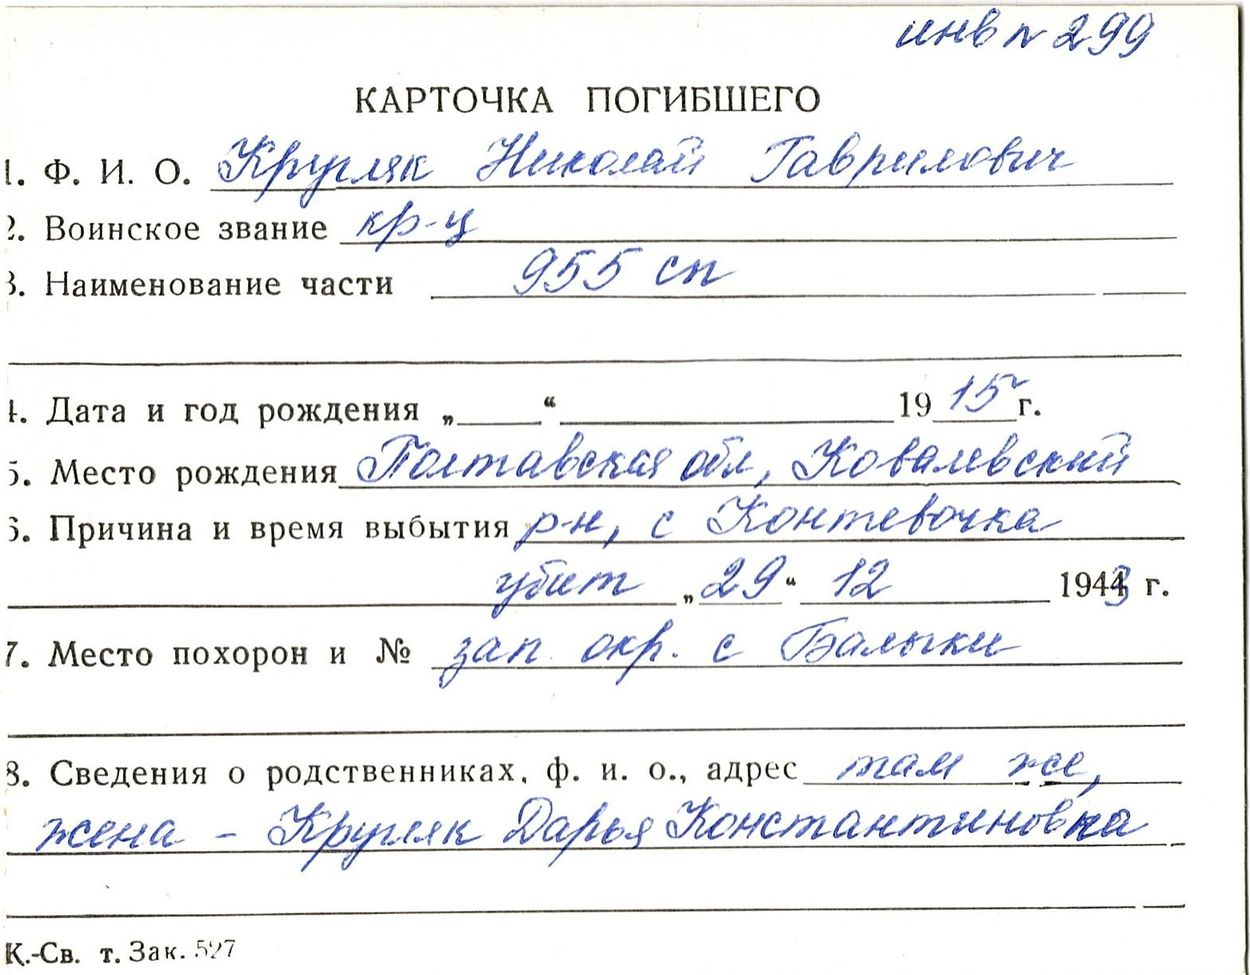 инв № 299
КАРТОЧКА ПОГИБШЕГО
1. Ф. И. О. Кругляк Николай Гаврилович
2. Воинское звание кр-ц
3. Наименование части 955 сп
4. Дата и год рождения „ “ 1915 г.
5. Место рождения Полтавская обл, Ковалевский
6. Причина и время выбытия р-н, с Контевочка
убит „29“ 12 1943 г.
7. Место похорон и № зап. окр. с Балыки
8. Сведения о родственниках, ф. и. о., адрес там же,
жена – Кругляк Дарья Константиновна
К.-Св. т. Зак. 527